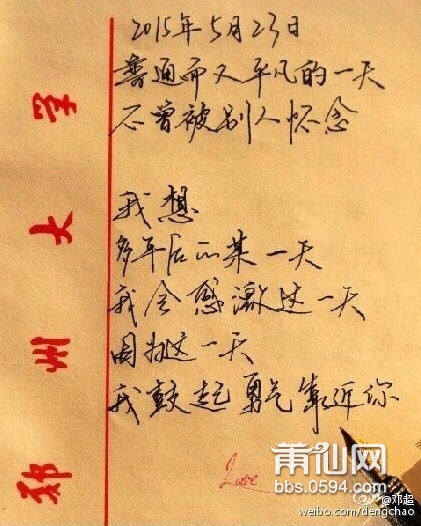 2015年5月23日
普通而又平凡的一天
不曾被别人怀念
我想
多年后的某一天
我会感激这一天
因为这一天
我鼓起勇气靠近你
郑州大学
Love
莆仙网
bbs.0594.com
@邓超
weibo.com/dengchao